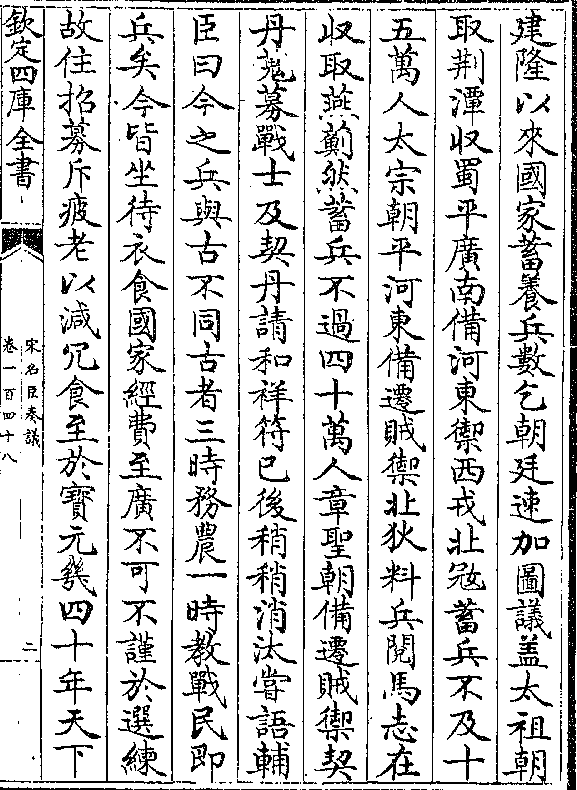 建隆以來國家蓄養兵數乞朝廷速加圖議盖太祖朝
取荆潭收蜀平廣南備河東禦西戎北㓂蓄兵不及十
五萬人太宗朝平河東備遷賊禦北狄料兵閱馬志在
收取燕薊然蓄兵不過四十萬人章聖朝備遷賊禦契
丹蒐募戰士及契丹請和祥符已後稍稍消汰嘗語輔
臣曰今之兵與古不同古者三時務農一時教戰民即
兵矣今皆坐待衣食國家經費至廣不可不謹於選練
故住招募斥疲老以減冗食至於寳元幾四十年天下
欽定四庫全書
宋名臣奏議
卷一百四十八
二